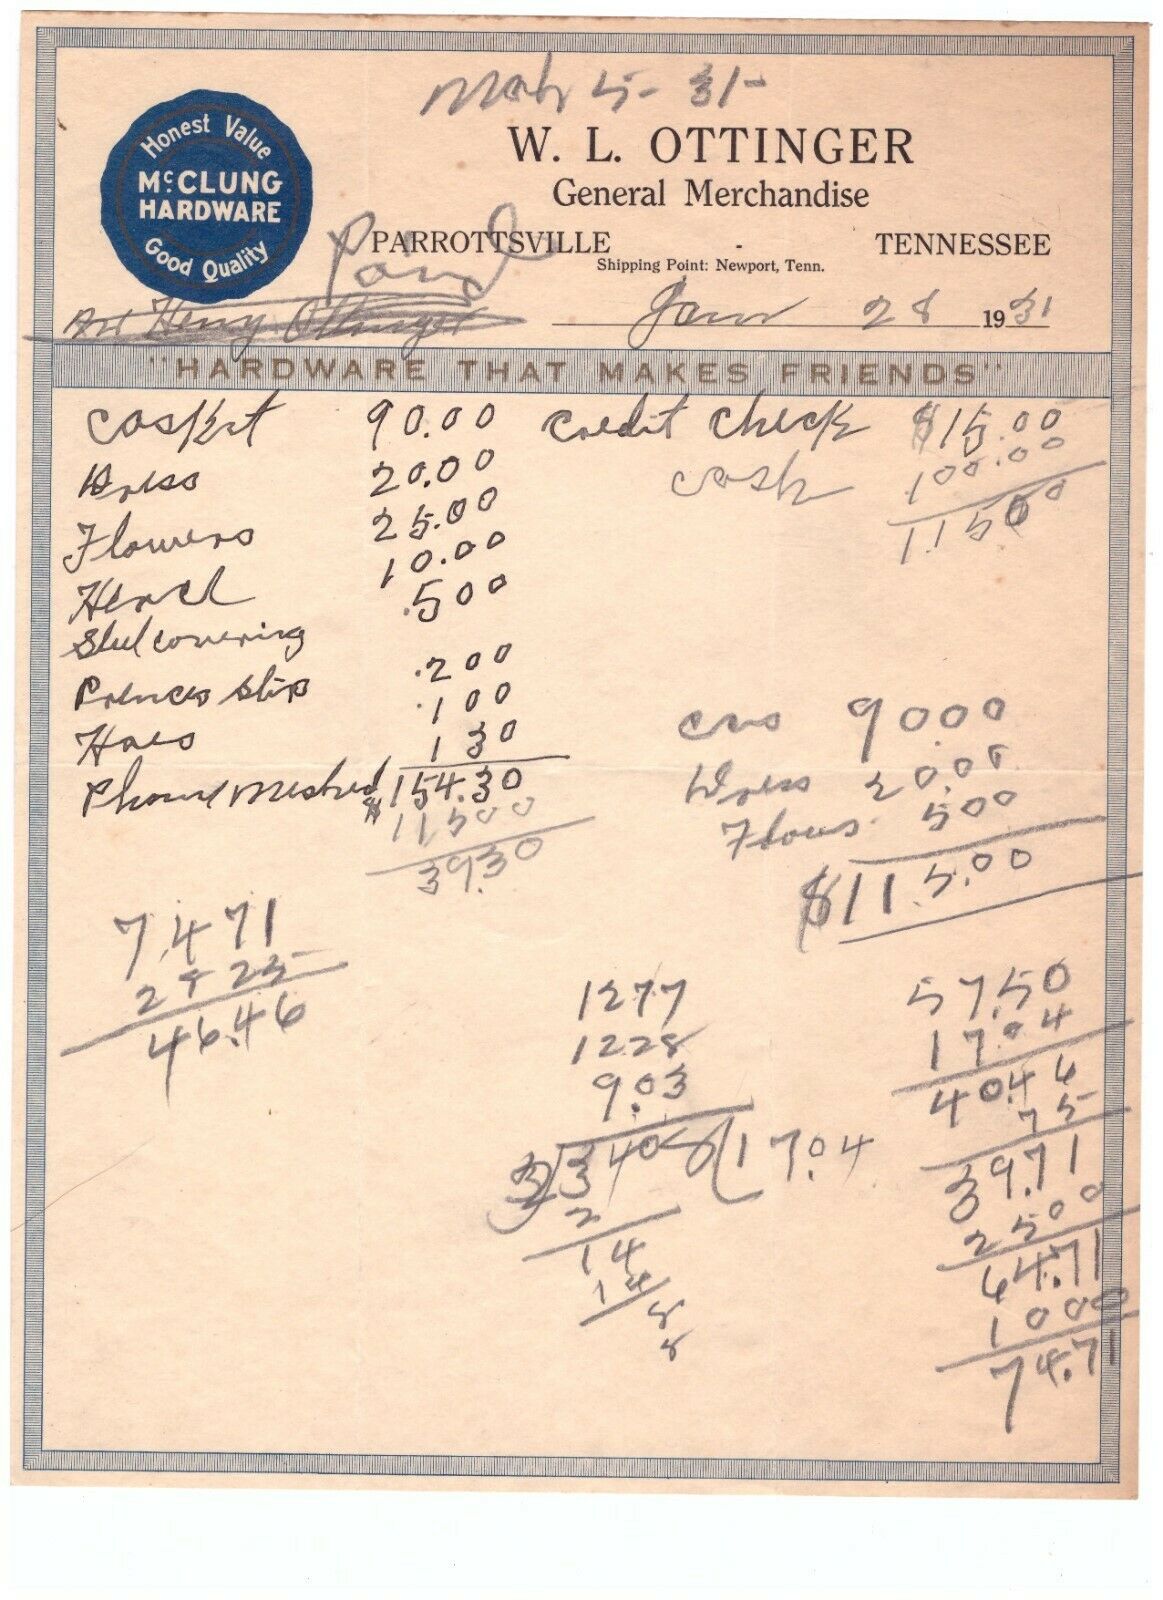 Mch 5- 31-
Honest Value
McCLUNG
HARDWARE
Good Quality
W. L. OTTINGER
General Merchandise
PARROTTSVILLE - TENNESSEE
Shipping Point: Newport, Tenn.
Paid
Henry Ottinger
Jan 28 1931
"HARDWARE THAT MAKES FRIENDS"
Caskit 90.00
Dress 20.00
Flowers 25.00
10.00
.500
Stul covering
.200
Princes slip
.100
Hoes
1 30
Phone 
$154.30
11500
39.30
Credit Check $15.00
Cash 100.00
11500
Cas 9000
Dress 20.00
Flows 500
$115.00
7.471
2825
46.46
1277
1228
9.03
2)3408(17.04
2
14
14
8
8
57.50
17.04
40.46
75
39.71
2500
64.71
1000
74.71